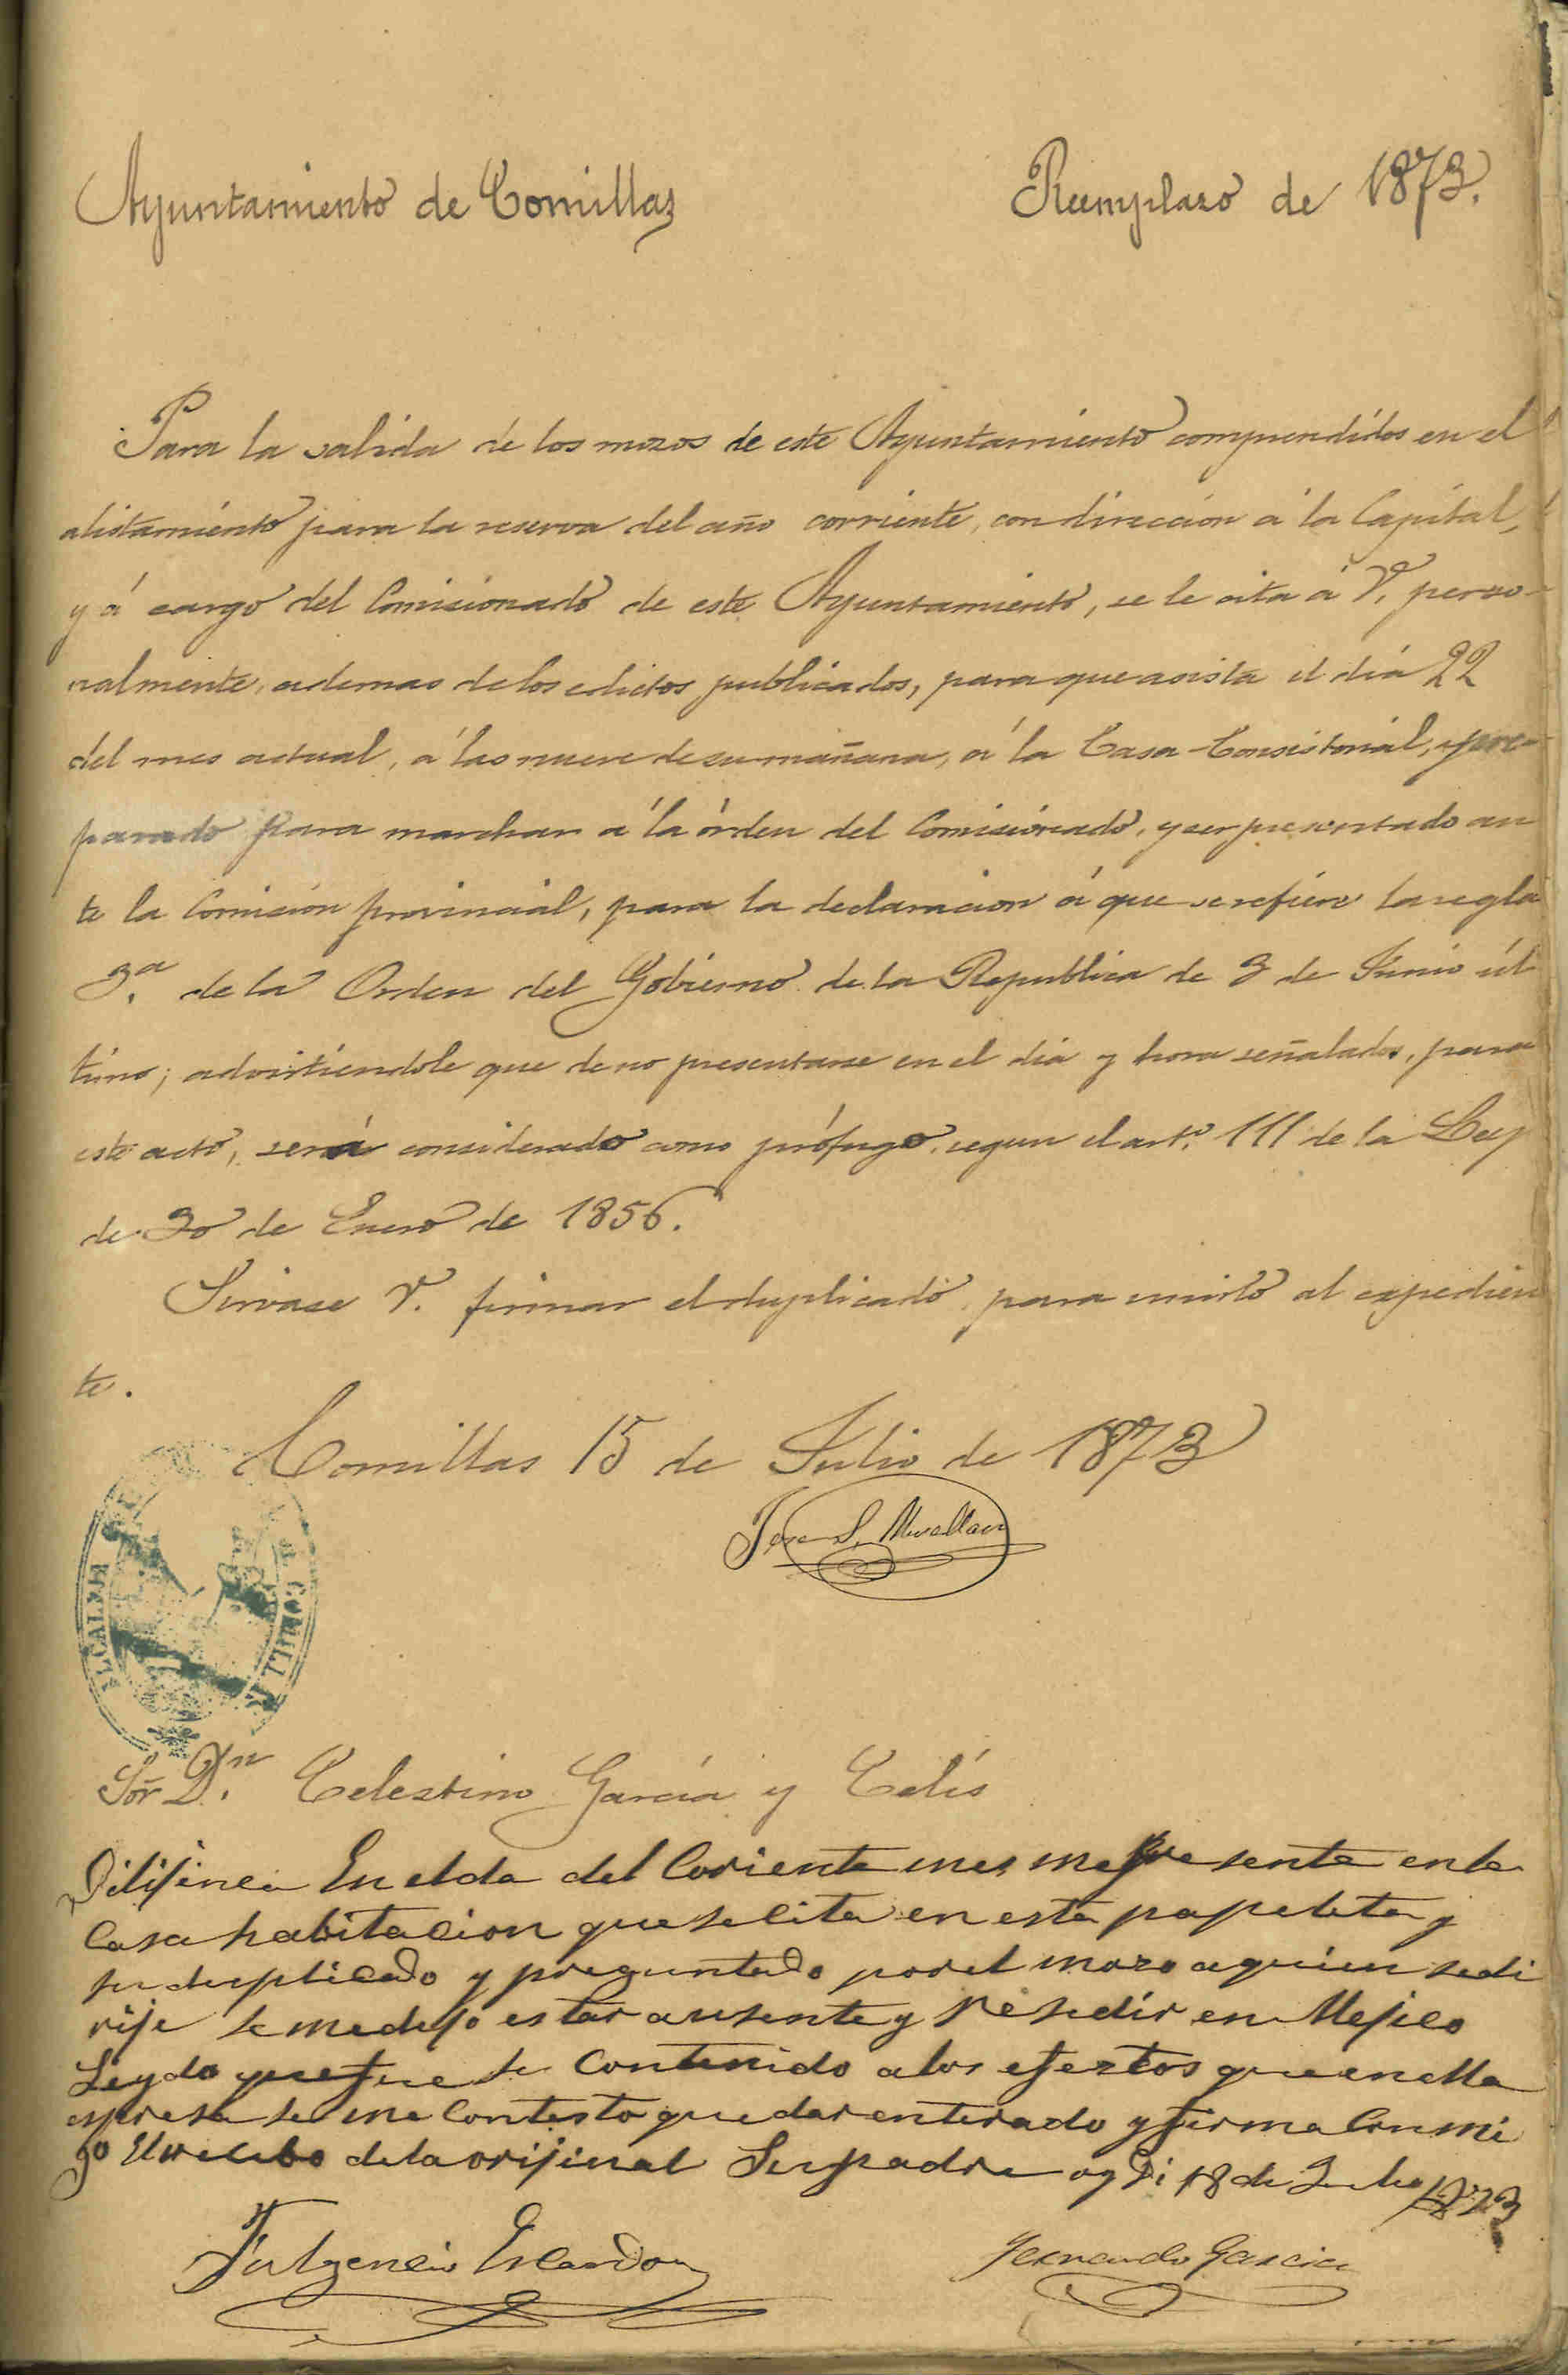 Ayuntamiento de Comillas
Reemplazo de 1873.
Para la salida de los mozos de este Ayuntamiento comprendidos en el
alistamiento para la reserva del año corriente, con dirección á la Capital,
y á cargo del Comisionado de este Ayuntamiento, se le cita á V. perso-
nalmente, ademas de los edictos publicados, para que asista el dia 22
del mes actual, á las nueve de su mañana, á la Casa-Consistorial, pre-
parado para marchar á la órden del Comisionado, y ser presentado an
te la Comision provincial, para la declaracion á que se refiere la regla
3.ª de la Orden del Gobierno de la Republica de 3 de Junio úl
timo; advirtiendole que de no presentarse en el dia y hora señalados, para
este acto, será considerado como prófugo, segun el art.º 111 de la Ley
de 30 de Enero de 1856.
Sirvase V. firmar el duplicado, para unirlo al expedien
te.
Comillas 15 de Julio de 1873
ALCALDIA COMILLAS
Sór D.n Celestino García y Celís
Dilijencia En el da del Coriente mes me presente en la
Casa habitacion que se cita en esta papeleta y
su duplicado y preguntado por el mozo a quien se di
rije se me dejo estar ausente y resedir en Mejico
Leydo que fue su Contenido a los efectos que en ella
espresa se me Contesto quedar enterado y firma Conmi
go El recibo de la orijinal Su padre oy Di 18 de Julio 1873
Fulgencio Escandon
Fernando Garcia